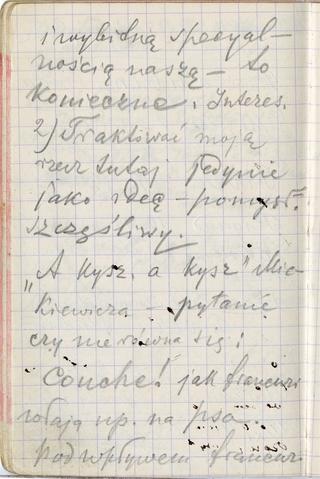 i wybitną specyal-
nością naszą - to
konieczne. Interes.
2) Traktować moją
rzecz tutaj jedynie
jako ideą - pomysł.
szczęśliwy.
„A kysz, a kysz" Mic-
kiewicza - pytanie
czy nie równa się:
Couche! jak francuzi
wołają np. na psa
Pod wpływem francuz.